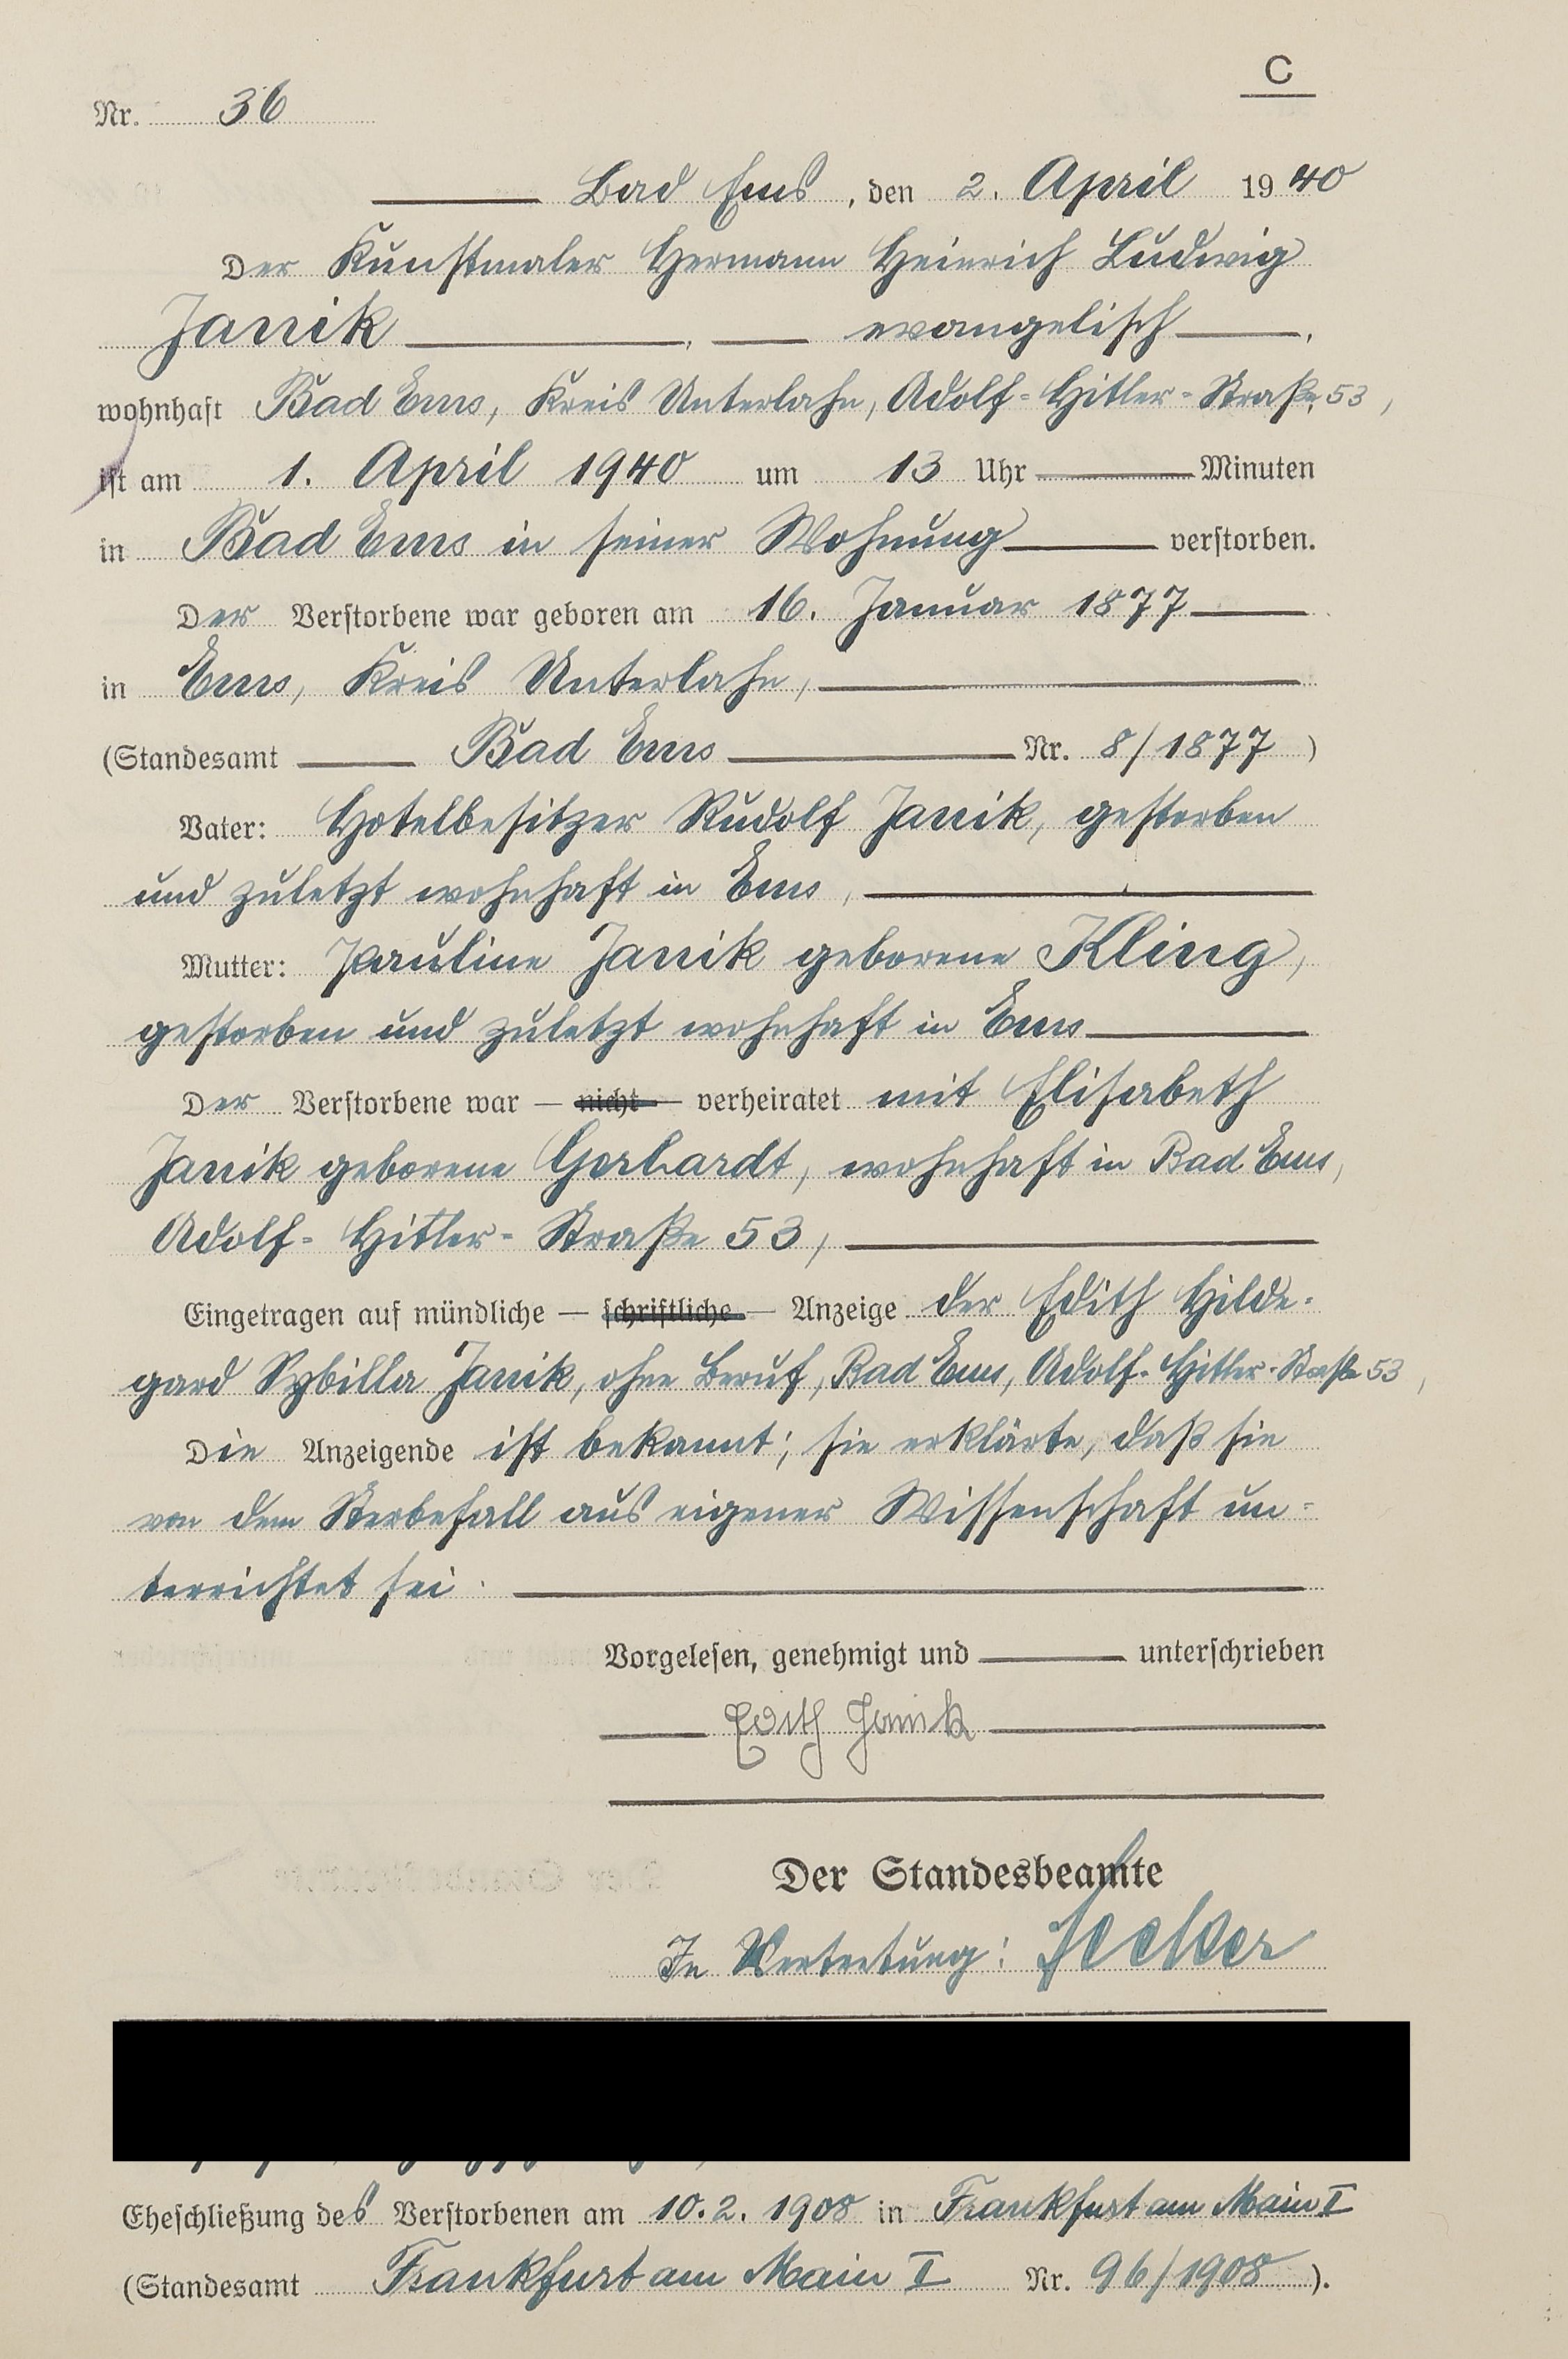 C
Nr. 36
Bad Ems, den 2. April 1940
Der Kunstmaler Hermann Heinrich Ludwig
Janik evangelisch,
wohnhaft Bad Ems, Kreis Unterlahn, Adolf-Hitler-Straße 53,
ist am 1. April 1940 um 13 Uhr Minuten
in Bad Ems in seiner Wohnung verstorben.
Der Verstorbene war geboren am 16. Januar 1877
in Ems, Kreis Unterlahn,
(Standesamt Bad Ems Nr. 8/1877)
Vater: Hotelbesitzer Rudolf Janik, gestorben
und zuletzt wohnhaft in Ems,
Mutter: Pauline Janik geborene Kling,
gestorben und zuletzt wohnhaft in Ems
Der Verstorbene war — nicht — verheiratet mit Elisabeth
Janik geborene Gerhardt, wohnhaft in Bad Ems,
Adolf-Hitler-Straße 53,
Eingetragen auf mündliche — schriftliche — Anzeige der Edith Hilde-
gard Sybilla Janik, ohne Beruf, Bad Ems, Adolf-Hitler-Straße 53,
Die Anzeigende ist bekannt; sie erklärte, daß sie
von dem Sterbefall aus eigener Wissenschaft un-
terrichtet sei.
Vorgelesen, genehmigt und unterschrieben
Edith Janik
Der Standesbeamte
In Vertretung:
Eheschließung des Verstorbenen am 10.2.1908 in Frankfurt am Main I
(Standesamt Frankfurt am Main I Nr. 96/1908).